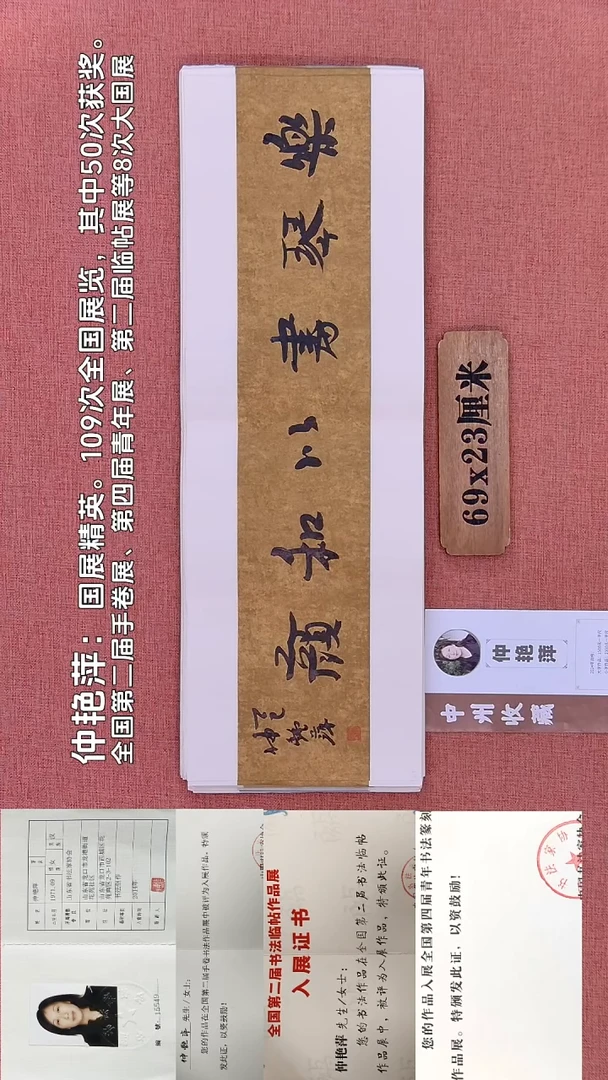 仲艳萍：国展精英。109次全国展览，其中50次获奖。
全国第二届手卷展、第四届青年展、第二届临帖展等8次大国展
樂琴書以和頤
乙巳
仲艳萍
69x23厘米
仲艳萍
中州收藏
仲艳萍
1971.09
山东省书法家协会
编 号:15549
仲艳萍 先生/女士：
您的作品在全国第二届手卷书法作品展中被评为入展作品，特颁
发此证，以资鼓励！
全国第二届书法临帖作品展
入展证书
仲艳萍 先生/女士：
您的书法作品在全国第二届书法临帖
作品展中，被评为入展作品，特颁此证。
您的作品入展全国第四届青年书法篆刻
作品展。特颁发此证，以资鼓励！